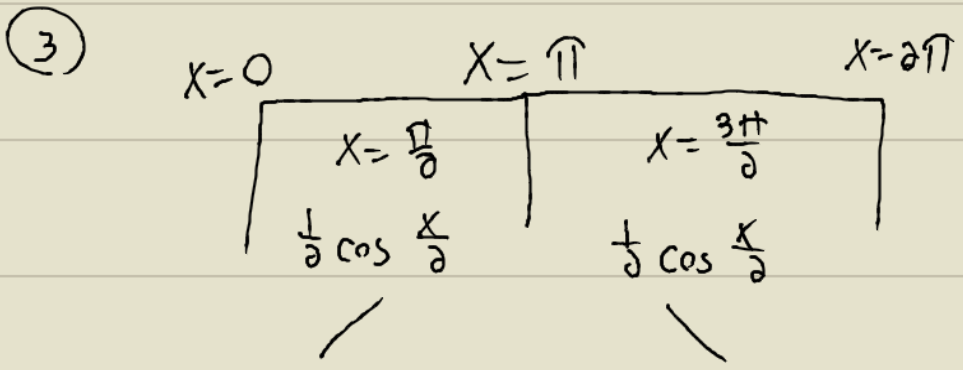 3
x=0 x=π x=2π
x=π/2 x=3π/2
1/2 cos x/2 1/2 cos x/2